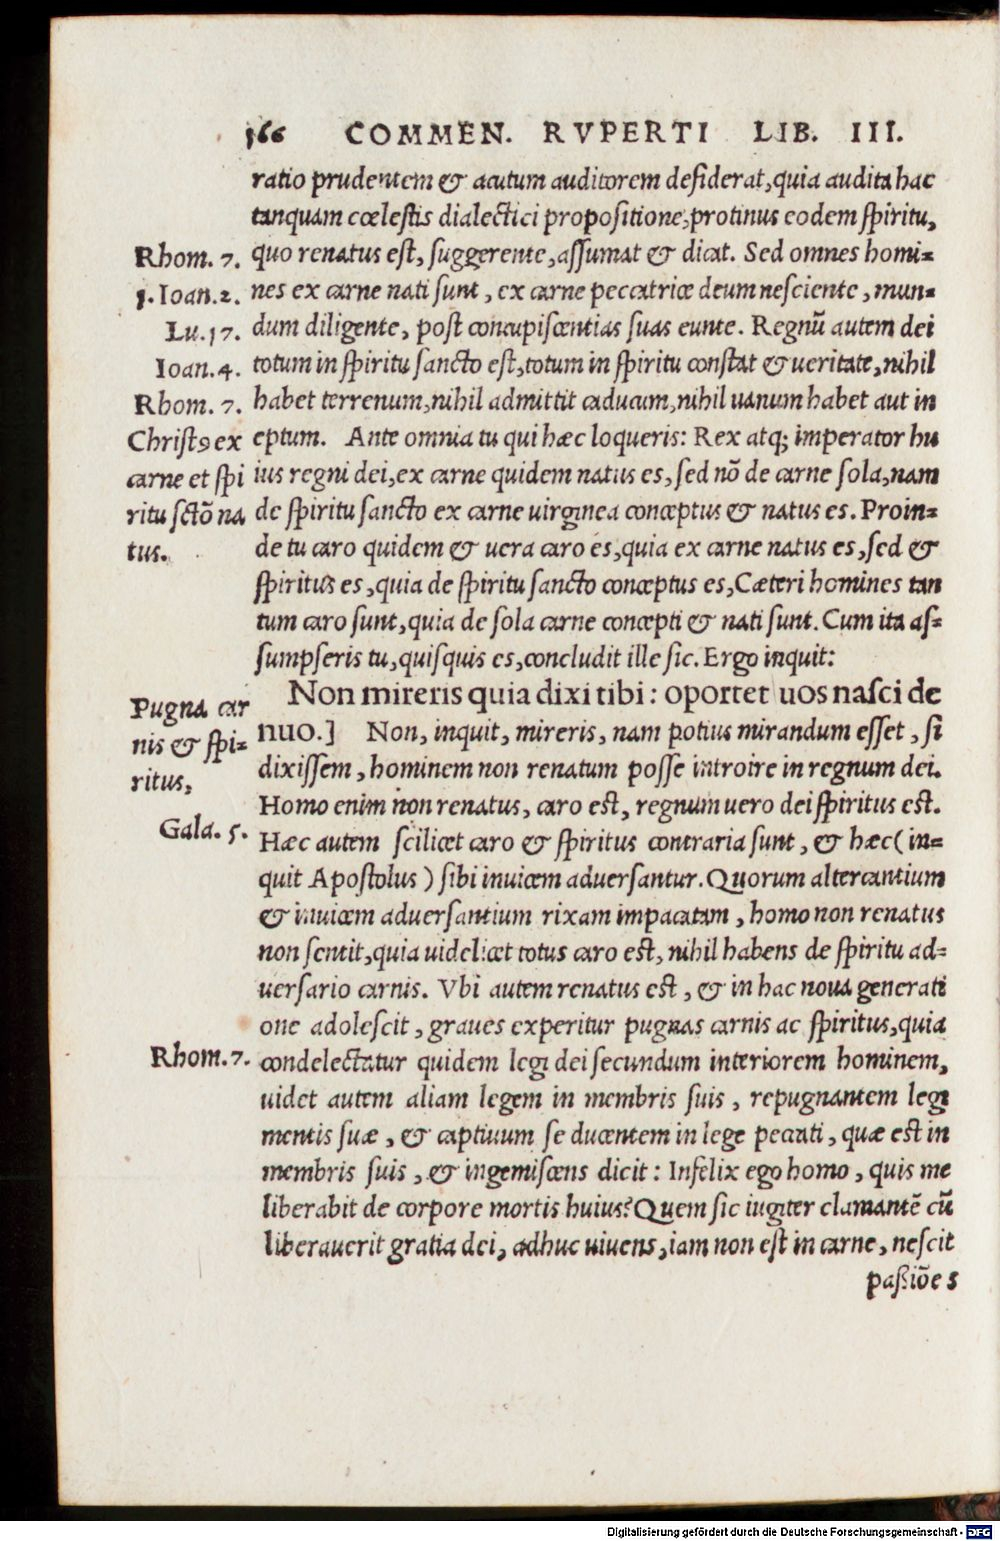 166 COMMEN. RVPERTI LIB. III.
ratio prudentem & acutum auditorem desiderat, quia audita hac
tanquam cœlestis dialectici propositione, protinus eodem spiritu,
Rhom. 7. quo renatus est, suggerente, assumat & dicat. Sed omnes homi-
1. Ioan. 2. nes ex carne nati sunt, ex carne peccatrice deum nesciente, mun-
Lu. 17. dum diligente, post concupiscentias suas eunte. Regnũ autem dei
Ioan. 4. totum in spiritu sancto est, totum in spiritu constat & ueritate, nihil
Rhom. 7. habet terrenum, nihil admittit caducum, nihil uanum habet aut in
Christꝰ ex eptum. Ante omnia tu qui hæc loqueris: Rex atq; imperator hu
carne et spi ius regni dei, ex carne quidem natus es, sed nõ de carne sola, nam
ritu sctõ na de spiritu sancto ex carne uirginea conceptus & natus es. Proin-
tus. de tu caro quidem & uera caro es, quia ex carne natus es, sed &
spiritus es, quia de spiritu sancto conceptus es, Cæteri homines tan
tum caro sunt, quia de sola carne concepti & nati sunt. Cum ita as-
sumpseris tu, quisquis es, concludit ille sic. Ergo inquit:
Non mireris quia dixi tibi: oportet uos nasci de
Pugna car nuo.] Non, inquit, mireris, nam potius mirandum esset, si
nis & spi- dixissem, hominem non renatum posse introire in regnum dei.
ritus, Homo enim non renatus, caro est, regnum uero dei spiritus est.
Gala. 5. Hæc autem scilicet caro & spiritus contraria sunt, & hæc (in-
quit Apostolus) sibi inuicem aduersantur. Quorum altercantium
& inuicem aduersantium rixam impacatam, homo non renatus
non sentit, quia uidelicet totus caro est, nihil habens de spiritu ad-
uersario carnis. Vbi autem renatus est, & in hac noua generati
one adolescit, graues experitur pugnas carnis ac spiritus, quia
Rhom. 7. condelectatur quidem legi dei secundum interiorem hominem,
uidet autem aliam legem in membris suis, repugnantem legi
mentis suæ, & captiuum se ducentem in lege peccati, quæ est in
membris suis, & ingemiscens dicit: Infelix ego homo, quis me
liberabit de corpore mortis huius? Quem sic iugiter clamantẽ cũ
liberauerit gratia dei, adhuc uiuens, iam non est in carne, nescit
paßiões
Digitalisierung gefördert durch die Deutsche Forschungsgemeinschaft - DFG